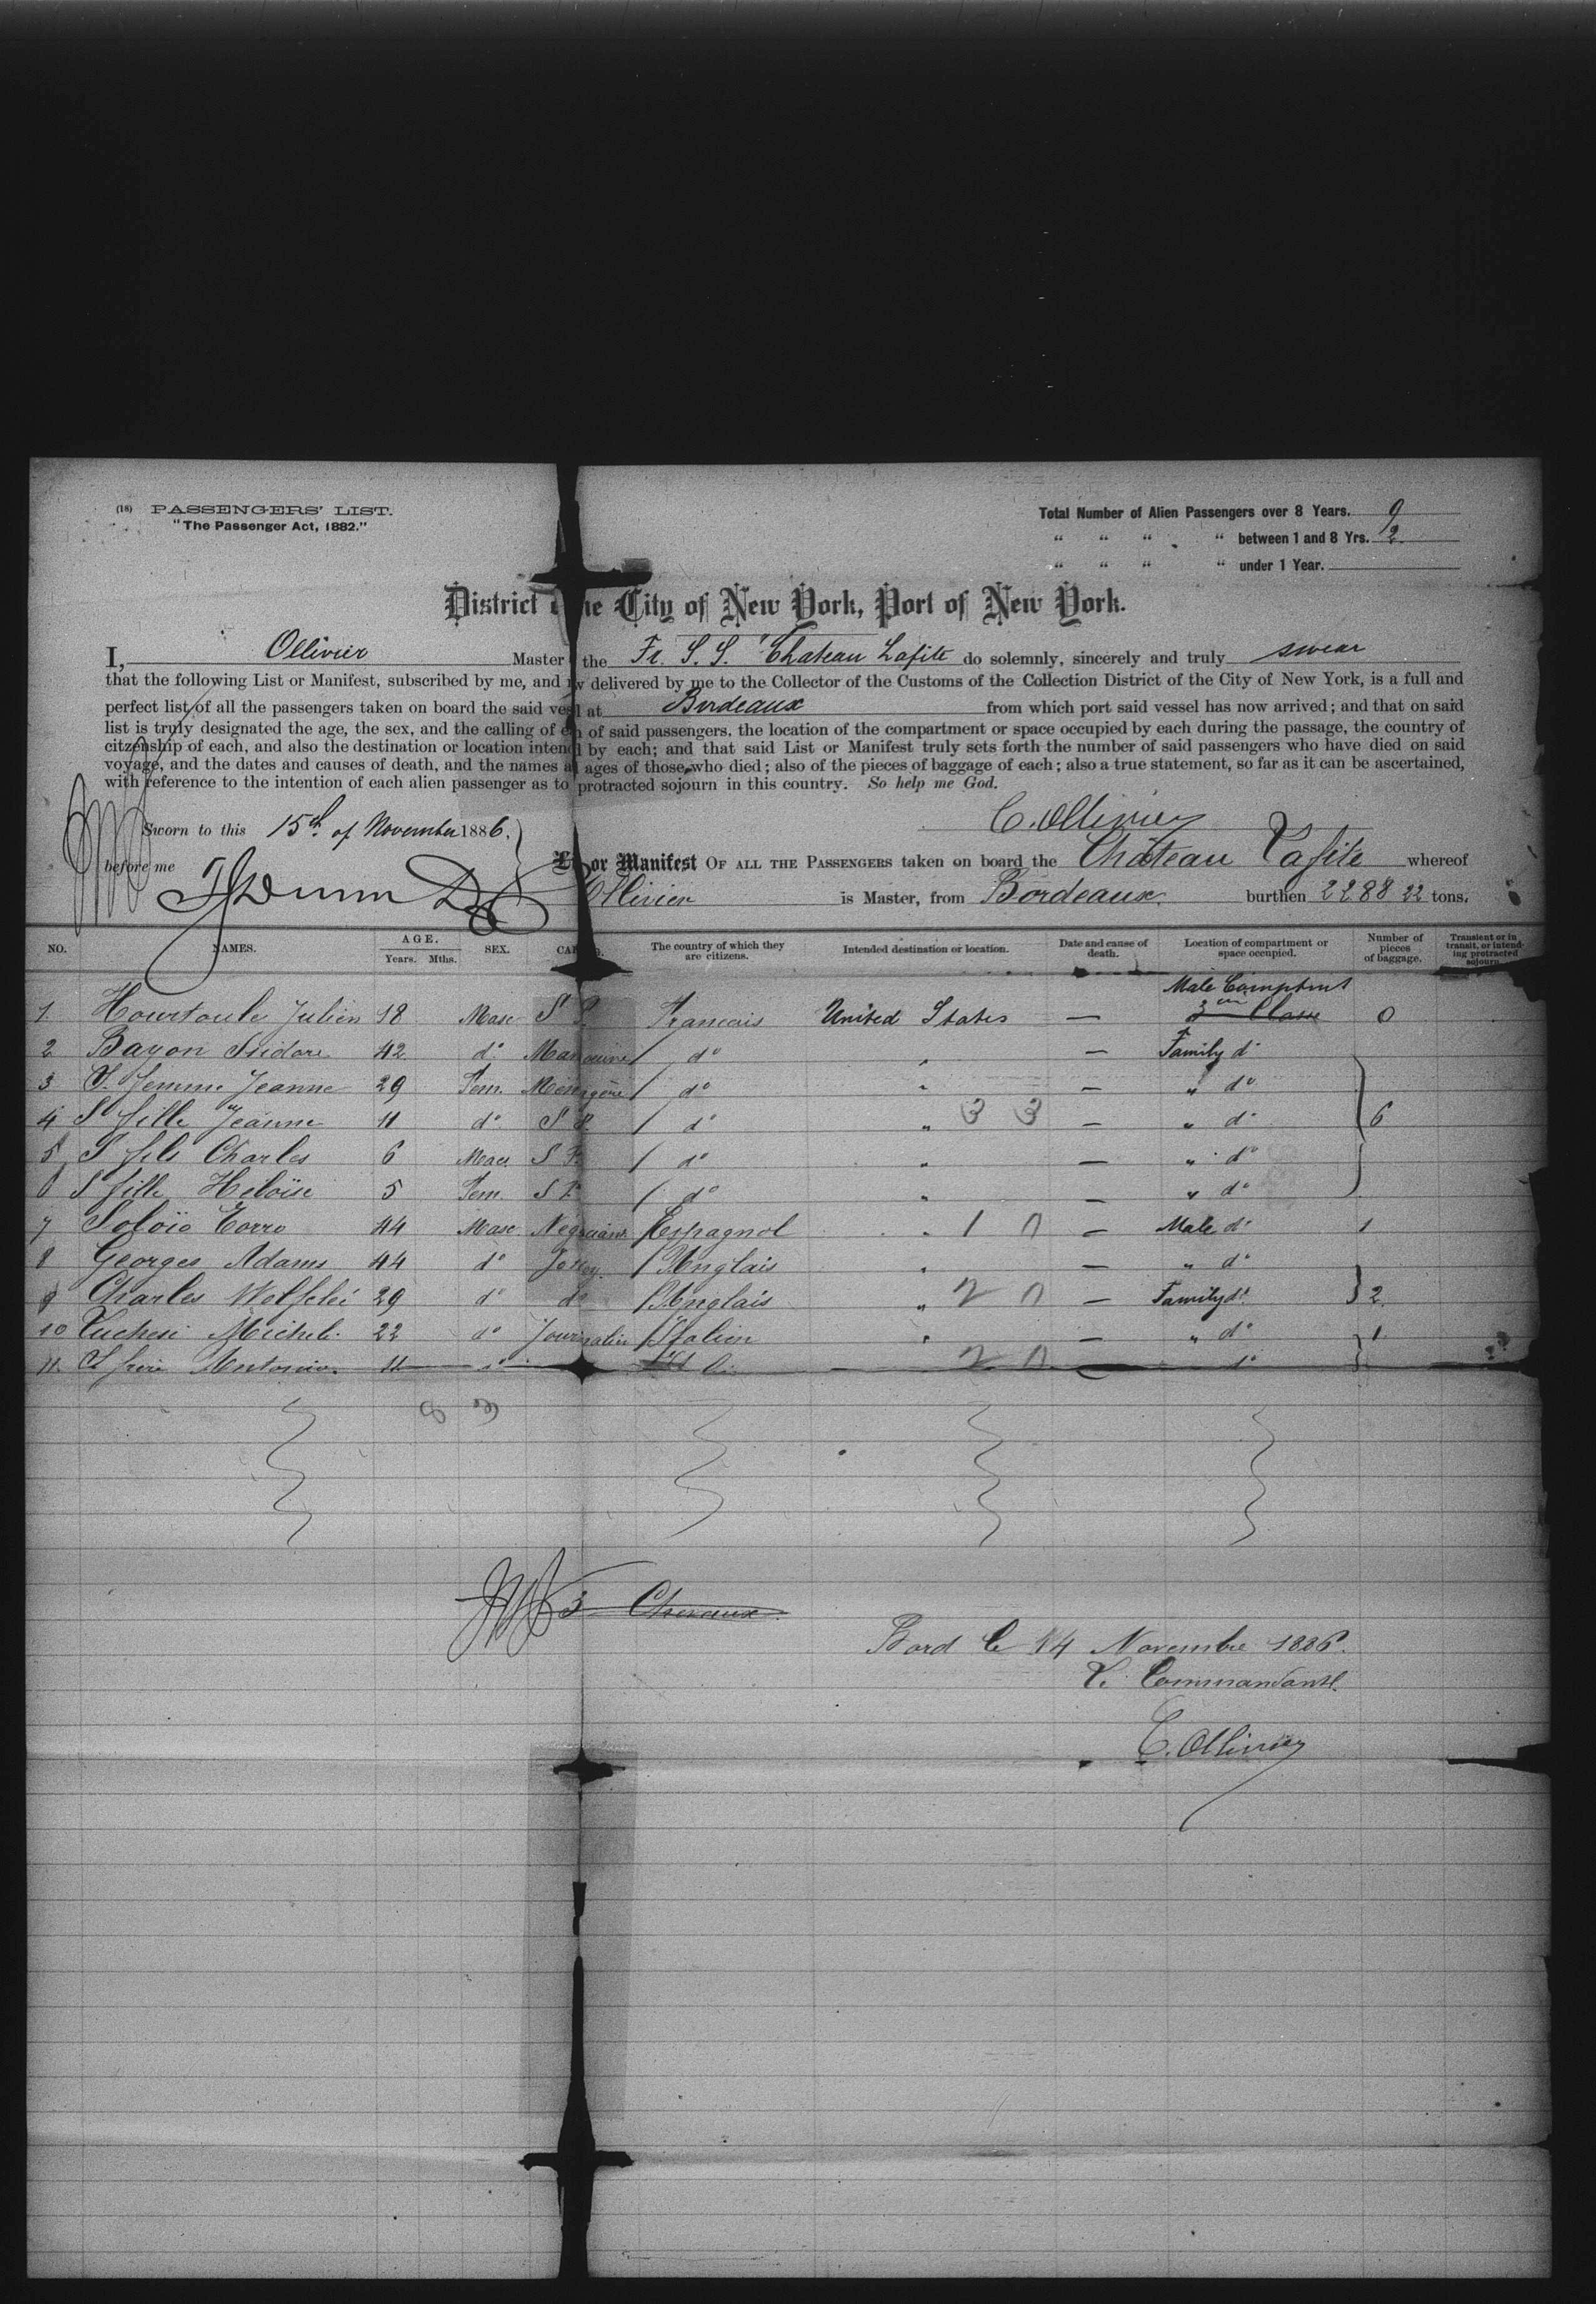 (18) PASSENGERS' LIST.
"The Passenger Act, 1882."
Total Number of Alien Passengers over 8 Years. 9
" " " " between 1 and 8 Yrs. 2
" " " " under 1 Year.
District the City of New York, Port of New York.
I, Ollivier Master the Fr. S. S. "Chateau Lafite do solemnly, sincerely and truly swear
that the following List or Manifest, subscribed by me, and delivered by me to the Collector of the Customs of the Collection District of the City of New York, is a full and
perfect list of all the passengers taken on board the said vessel at Bordeaux from which port said vessel has now arrived; and that on said
list is truly designated the age, the sex, and the calling of each of said passengers, the location of the compartment or space occupied by each during the passage, the country of
citizenship of each, and also the destination or location intended by each; and that said List or Manifest truly sets forth the number of said passengers who have died on said
voyage, and the dates and causes of death, and the names and ages of those who died; also of the pieces of baggage of each; also a true statement, so far as it can be ascertained,
with reference to the intention of each alien passenger as to protracted sojourn in this country. So help me God.
Sworn to this 15th of November 1886.
C. Ollivier
before me
or Manifest OF ALL THE PASSENGERS taken on board the Château Lafite whereof
Ollivier is Master, from Bordeaux. burthen 2288 22 tons.
NO. NAMES. AGE. Years. Mths. SEX. The country of which they are citizens. Intended destination or location. Date and cause of death. Location of compartment or space occupied. Number of pieces of baggage. Transient or in transit, or intending protracted sojourn.
Male Comptmt
1. Hourtoule Julien 18 Masc S P. Francais United States — 3me Classe 0
2 Bayon Isidore 42 do / do " — Family do
3 S. femme Jeanne 29 Fem. Ménagère / do " — " do
4 S fille Jeanne 11 do S P. / do " 3 3 — " do 6
5 S fils Charles 6 Masc S P. / do " — " do
6 S fille Heloïse 5 Fem. S P. / do " — " do
7 Torro 44 Masc Negociant / Espagnol " 1 0 — Male do 1
8 Georges Adams 44 do / Anglais " — " do
9 Charles 29 do do / Anglais " 2 0 — Family do 2
10 Luchesi Michel. 22 do Journalier / Italien " — " do 1
11 S frère Antonio. 11 do 2 0 — do
8 3
3 Chevaux
Bord le 14 Novembre 1886.
Le Commandant.
C. Ollivier